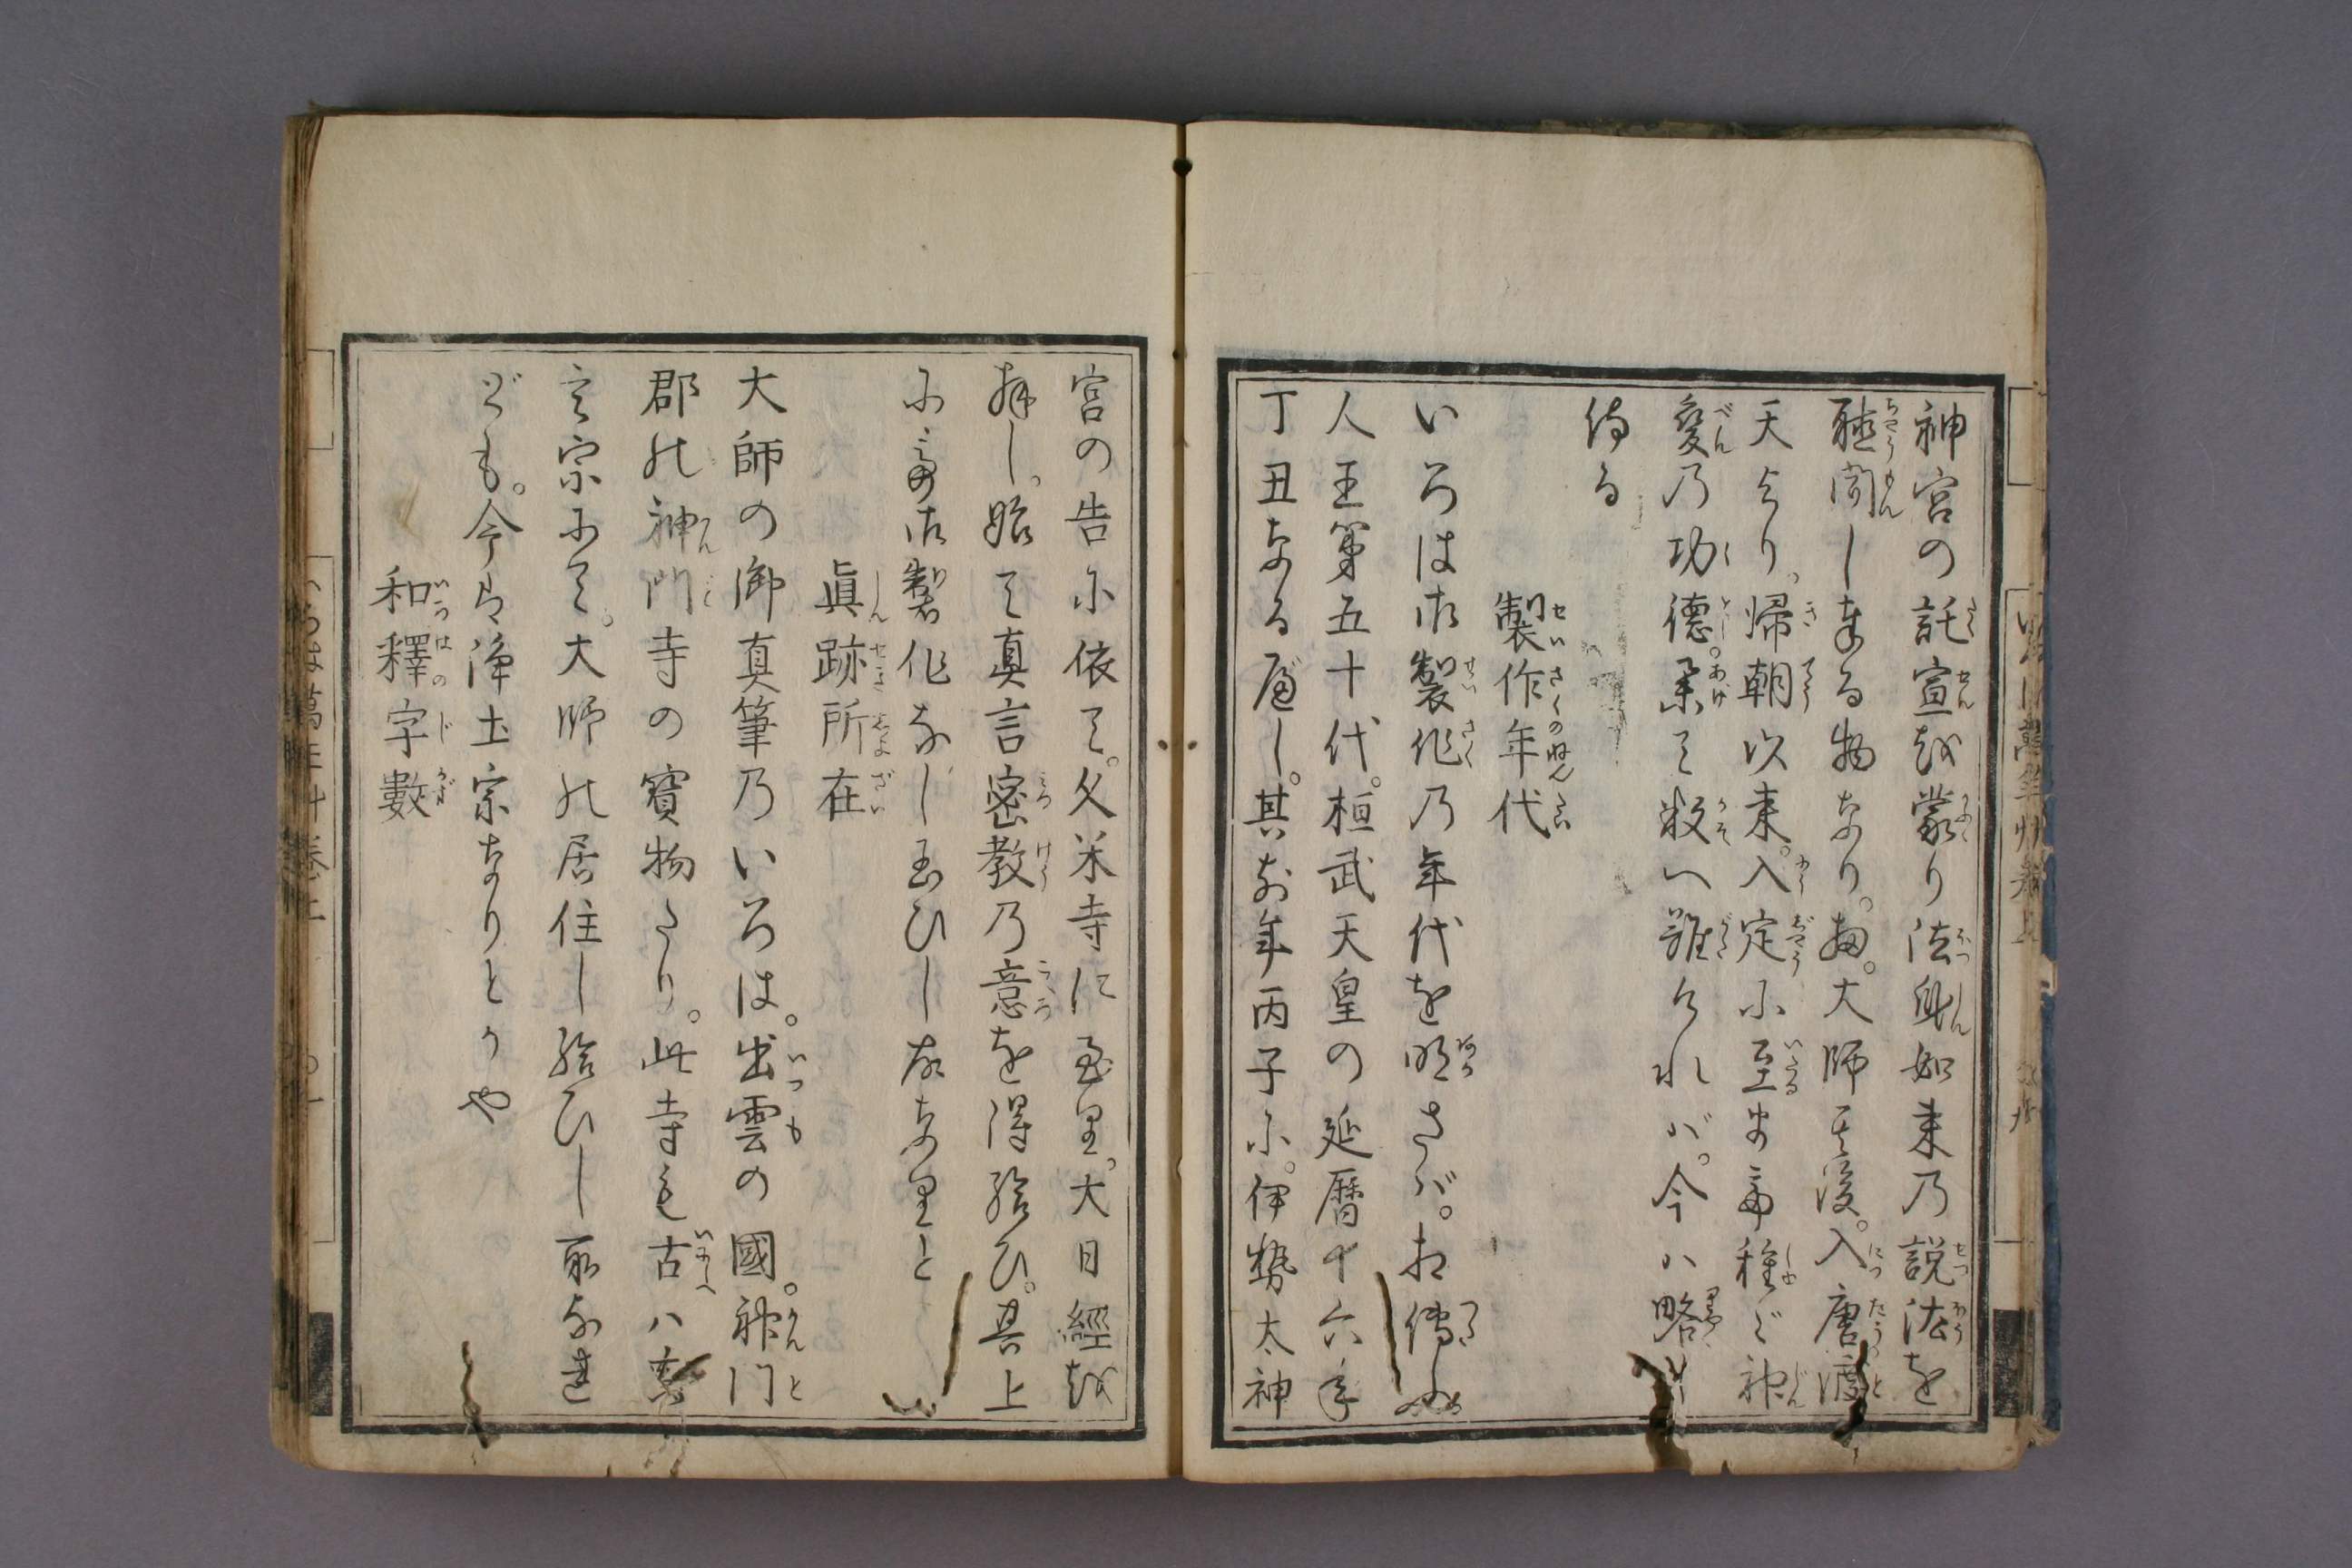 神宮の託宣越蒙り法身如来乃説法を
聴聞し奉る物なり。抑。大師其後。入唐渡
天より。帰朝以来。入定に至まで種々神
変乃功徳。挙て数へ難ければ。今ハ略し
侍る
製作年代
いろは御製作乃年代を明さば。相傳ふ
人王第五十代。桓武天皇の延暦十六年
丁丑なる べし。其前年丙子に。伊勢太神
宮の告に依て。久米寺に至里。大日經越
拝し。始て真言密教乃意を得給ひ。其上
にて御製作なし玉ひし故なりと
眞跡所在
大師の御真筆乃いろは。出雲の國。神門
郡の神門寺の寳物たり。此寺も古ハ真
言宗にて。大師の居住し給ひし所なれ
ども。今は浄土宗なりとかや
和釋字數